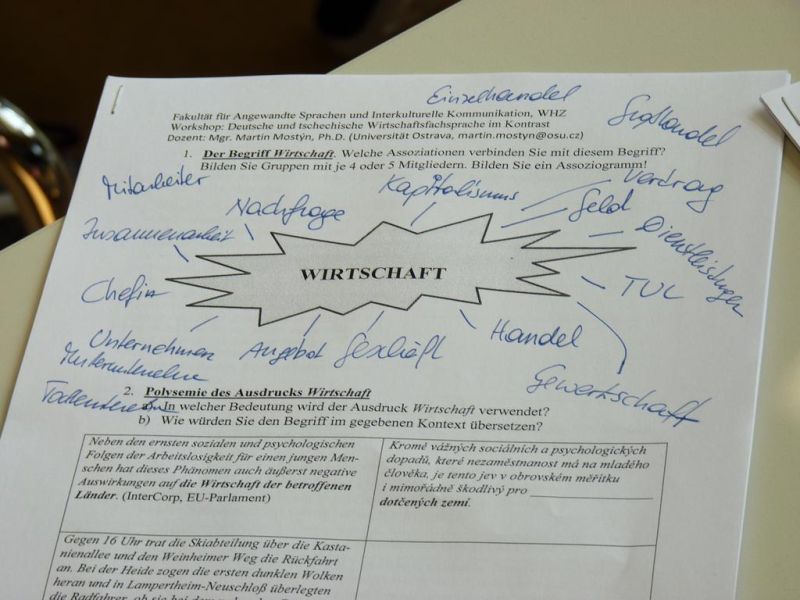 Einzelhandel
Großhandel
Fakultät für Angewandte Sprachen und Interkulturelle Kommunikation, WHZ
Workshop: Deutsche und tschechische Wirtschaftsfachsprache im Kontrast
Dozent: Mgr. Martin Mostýn, Ph.D. (Universität Ostrava, martin.mostyn@osu.cz)
1. Der Begriff Wirtschaft. Welche Assoziationen verbinden Sie mit diesem Begriff?
Bilden Sie Gruppen mit je 4 oder 5 Mitgliedern. Bilden Sie ein Assoziogramm!
Mitarbeiter
Nachfrage
Kapitalismus
Vertrag
Geld
Dienstleistungen
Zusammenarbeit
WIRTSCHAFT
TUL
Chefin
Handel
Unternehmen
Angebot
Geschäft
Gewerkschaft
2. Polysemie des Ausdrucks Wirtschaft
a) In welcher Bedeutung wird der Ausdruck Wirtschaft verwendet?
b) Wie würden Sie den Begriff im gegebenen Kontext übersetzen?
Neben den ernsten sozialen und psychologischen
Folgen der Arbeitslosigkeit für einen jungen Men-
schen hat dieses Phänomen auch äußerst negative
Auswirkungen auf die Wirtschaft der betroffenen
Länder. (InterCorp, EU-Parlament)
Kromě vážných sociálních a psychologických
dopadů, které nezaměstnanost má na mladého
člověka, je tento jev v obrovském měřítku
i mimořádně škodlivý pro
dotčených zemí.
Gegen 16 Uhr trat die Skiabteilung über die Kasta-
nienallee und den Weinheimer Weg die Rückfahrt
an. Bei der Heide zogen die ersten dunklen Wolken
heran und in Lampertheim-Neuschloß überlegten
die Radfahrer, ob sie bei